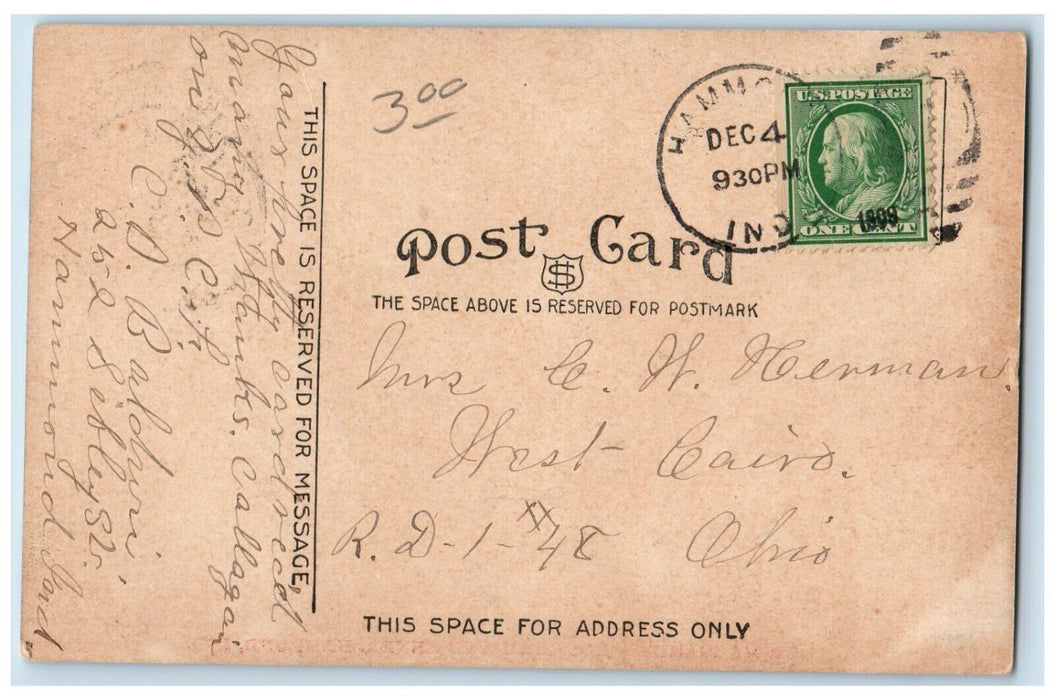 Your lovely card recd
many thanks. Call again
on J. P. C. f.
C. D. Baldwin
252 Sibley St.
Hammond Ind.
THIS SPACE IS RESERVED FOR MESSAGE,
3.00
HAMMO
DEC 4
930PM
IND
U.S. POSTAGE
1909
ONE CENT
Post Card
THE SPACE ABOVE IS RESERVED FOR POSTMARK
Mrs C. W. Herman.
West Cairo.
R. D-1- xx 48 Ohio
THIS SPACE FOR ADDRESS ONLY